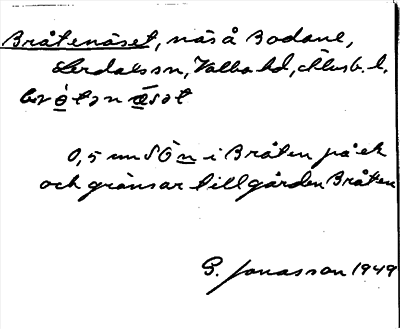 Bråtenäset, näs å Bodane,
Lerdalssn, Valbo hd, Älvsb. l.
bròtənǽsət
0,5 mm SÖ n i Bråten på ek
och gränsar till gården Bråten
G. Jonasson 1949